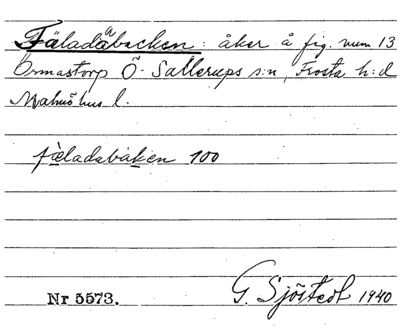 Fäladabacken: åker å fig. num 13
Ormastorp Ö. Sallerups s:n, Frosta h:d
Malmöhus l.
fèladabaken 100
Nr 5573.
G. Sjöstedt 1940